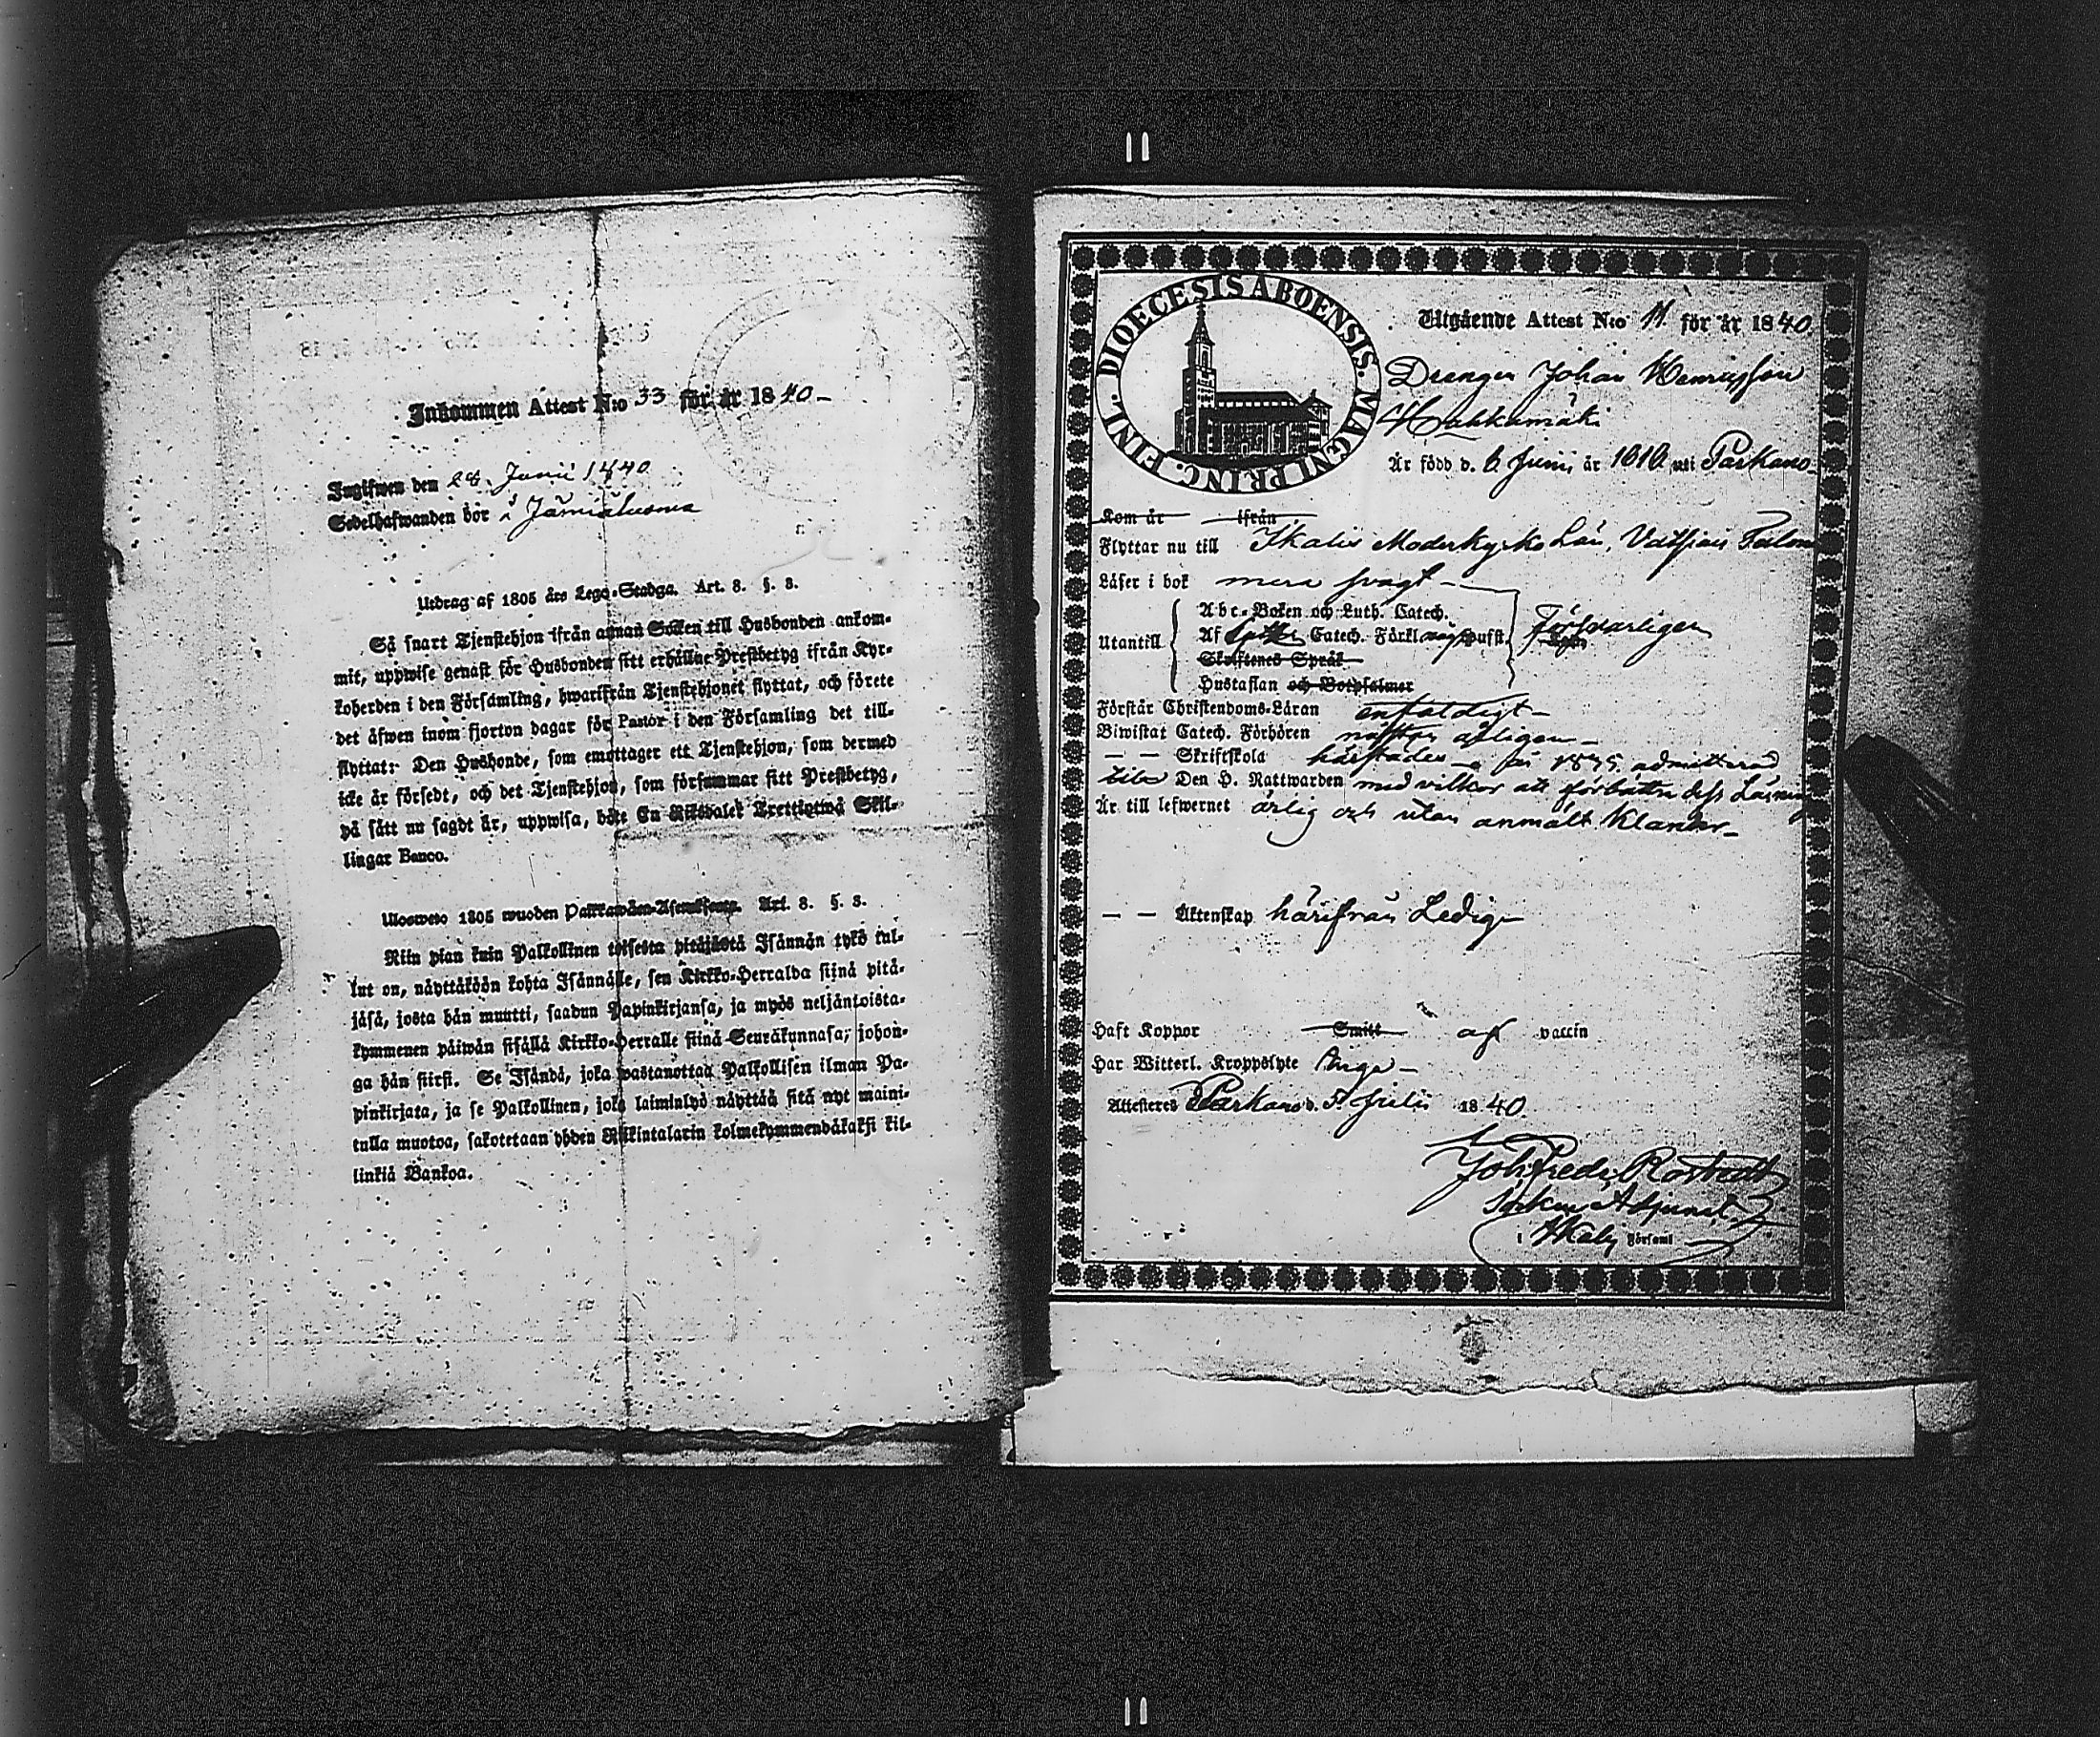 Inkommen Attest N:o 33 för år 1840 –
Ingifwen den 28 Junii 1840
Sedelhafwanden bor i
Utdrag af 1805 års Lego-Stadga. Art. 8. §. 8.
Så snart Tjenstehjon ifrån annan Socken till Husbonden ankom-
mit, uppwise genast för Husbonden sitt erhållne Prestbetyg ifrån Kyr-
koherden i den Församling, hwarifrån Tjenstehjonet flyttat, och förete
det äfwen inom fjorton dagar för Pastor i den Församling det till-
flyttat: Den Husbonde, som emottager ett Tjenstehjon, som dermed
icke är försedt, och det Tjenstehjon, som försummar sitt Prestbetyg,
på sätt nu sagdt är, uppwisa, böte En Riksdaler Trettiotwå Skil-
lingar Banco.
Ulosweto 1805 wuoden Palkkawäen-Asetuksesta. Art. 8. §. 8.
Niin pian kuin Palkollinen toisesta pitäjästä Isännän tykö tul-
lut on, näyttäköön kohta Isännälle, sen Kirkko-Herralda siinä pitä-
jäsä, josta hän muutti, saadun Papinkirjansa, ja myös neljäntoista-
kymmenen päiwän sisällä Kirkko-Herralle siinä Seuräkunnasa, johon-
ga hän siirsi. Se Isändä, joka wastanottaa Palkollisen ilman Pa-
pinkirjata, ja se Palkollinen, joka laiminlyö näyttää sitä nyt maini-
tulla muotoa, sakotetaan yhden Riikintalarin kolmekymmendäkaksi kil-
linkiä Bankoa.
DIOECESIS ABOENSIS. MAGNI PRINC. FINL.
Utgående Attest N:o 11. för år 1840.
Drengen Johan Henricsson
Hahkamäki
Är född d. 6 Junii år 1818 uti Parkano
Kom år ifrån
Flyttar nu till Ikalis Moderkyrko
Läser i bok mera svagt –
Utantill
Abc-Boken och Luth. Catech.
Af Catech. Förkl.
Skriftenes Språk
Hustaflan och Botpsalmer
Försvarligen
Förstår Christendoms-Läran enfaldigt –
Biwistat Catech. Förhören årligen –
– – Skriftskola härstädes – år 1835. admitterad
till Den H. Nattwarden med vilkor att förbättra dess Läsning
Är till lefwernet ärlig och utan anmält Klander –
– – Äktenskap härifrån Ledig
Haft Koppor Smitt af vaccin
Har Witterl. Kroppslyte Inga –
Attesteres Parkano d. 5. Julii 1840.
Joh. Fredr.
Adjunct
i Ikalis Församl